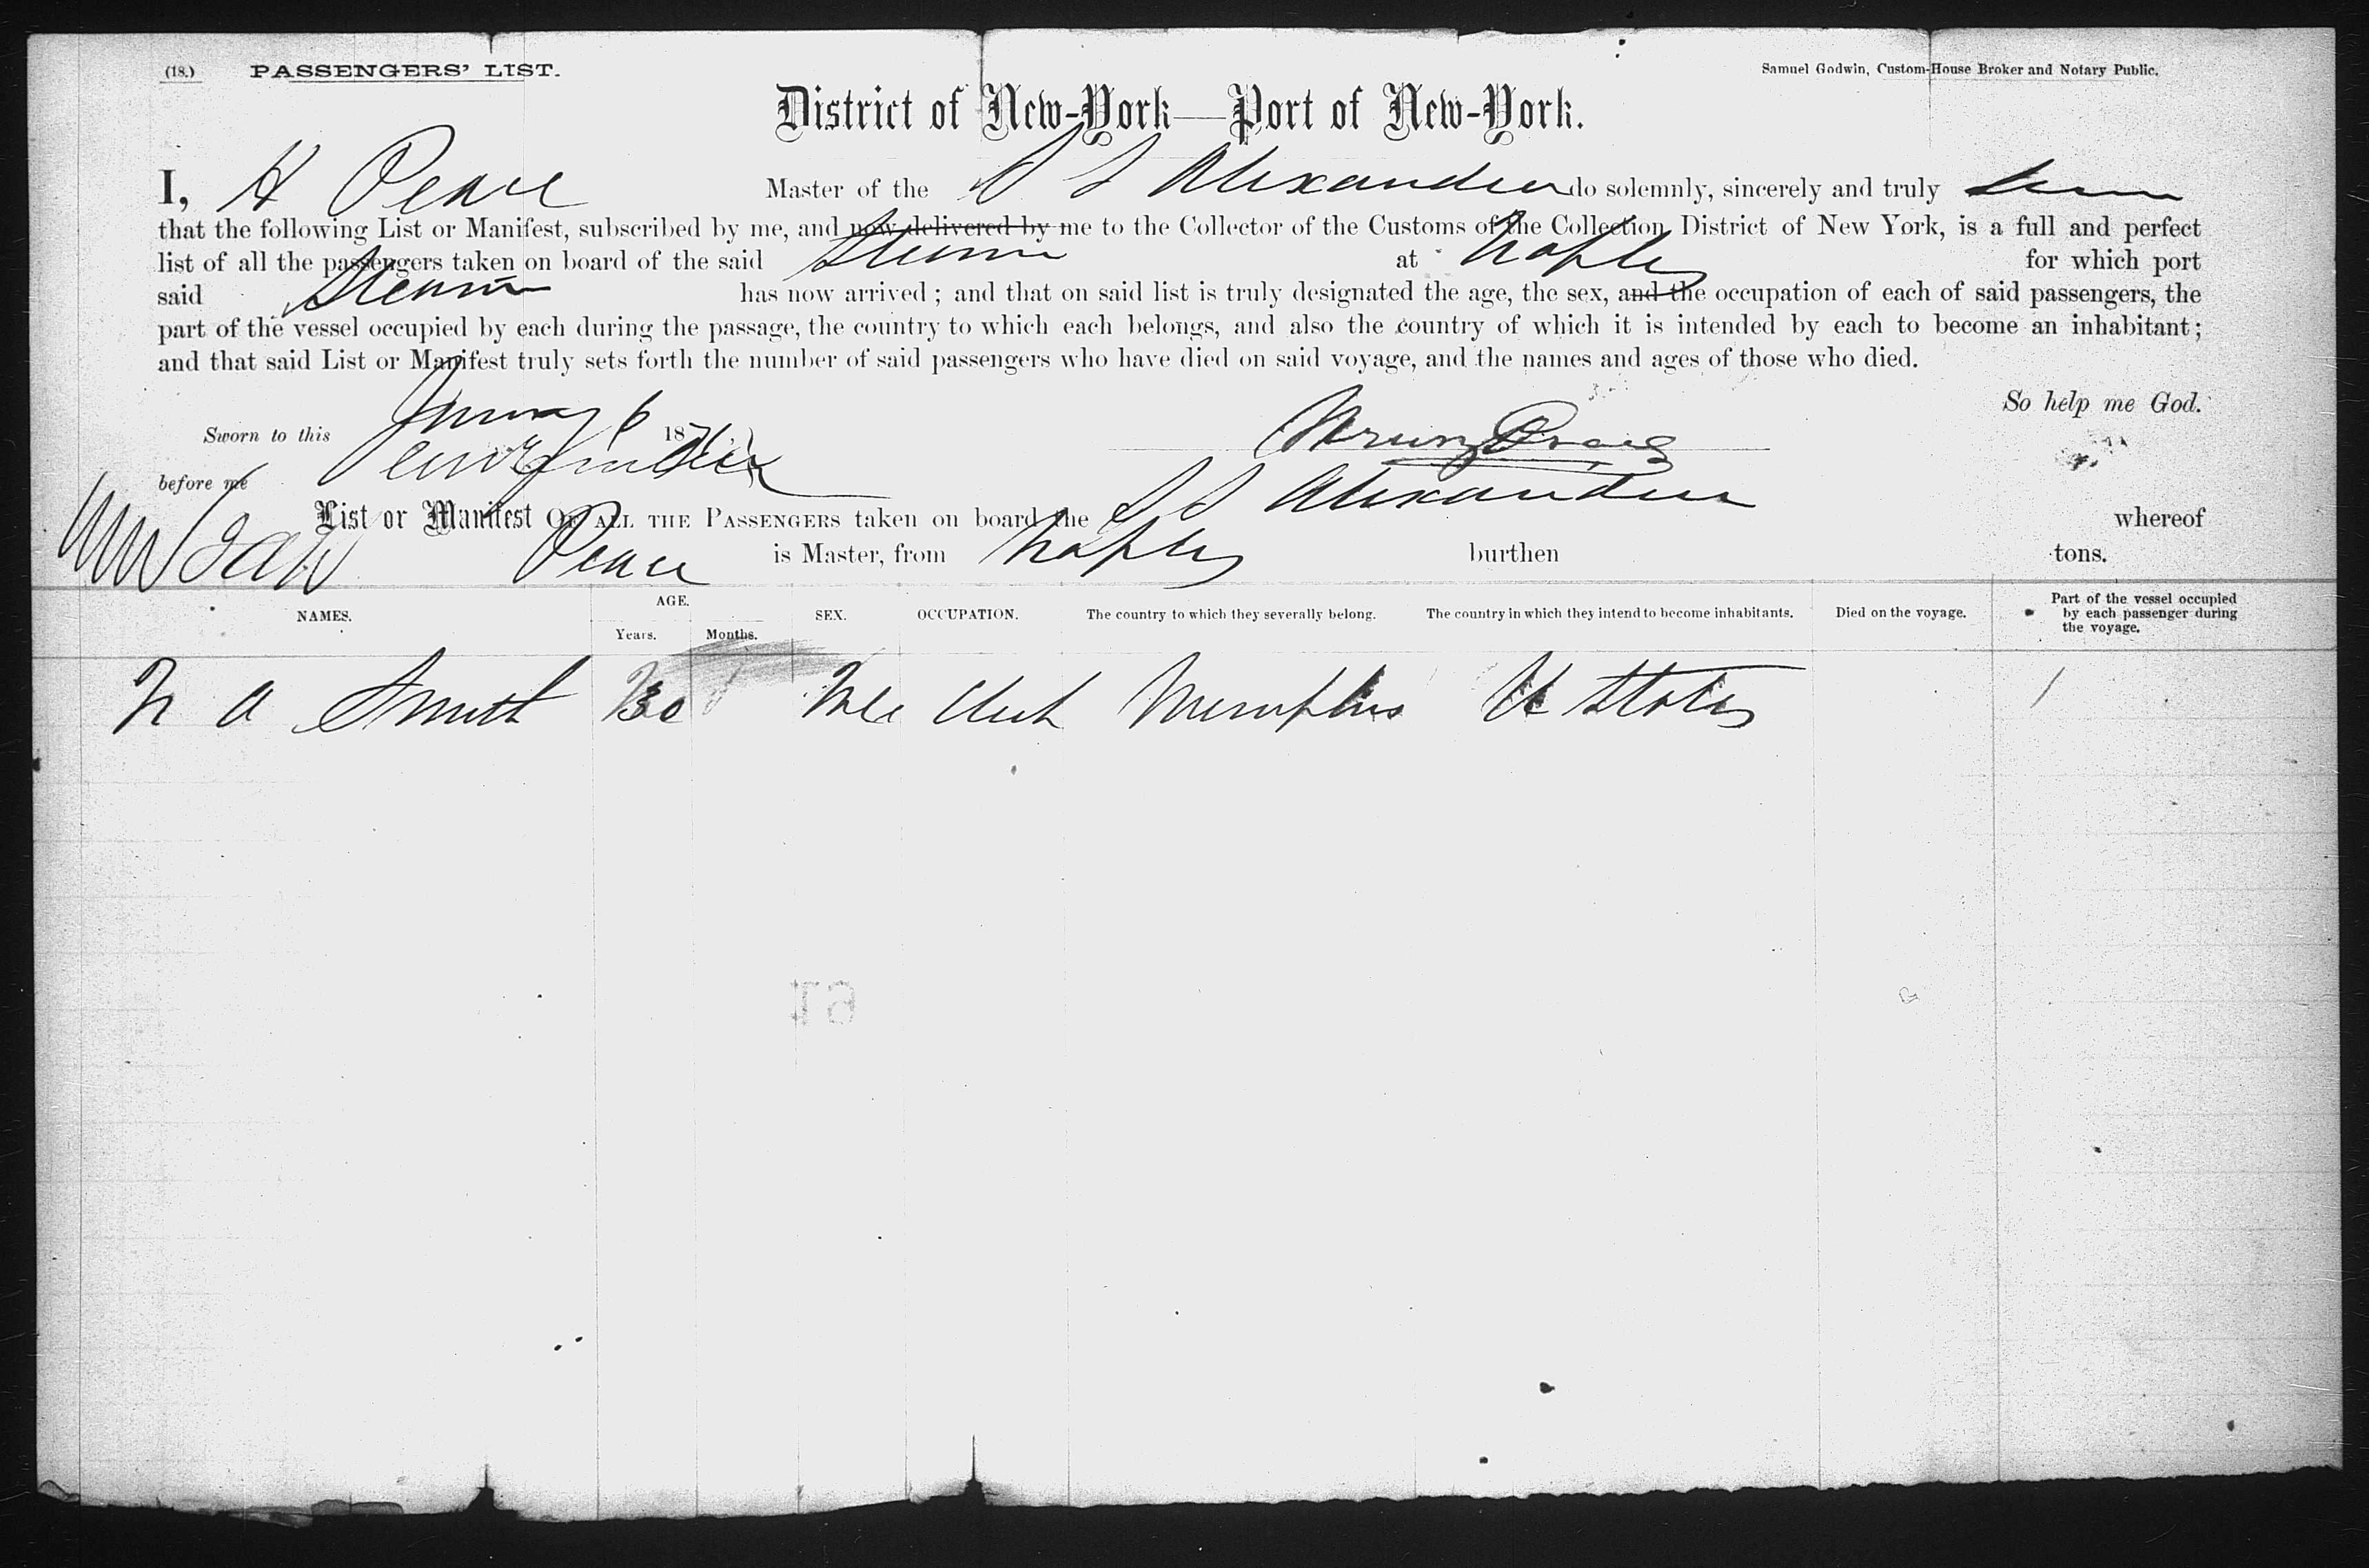 (18.) PASSENGERS' LIST. Samuel Godwin, Custom-House Broker and Notary Public.
District of New-York—Port of New-York.
I, H Peace Master of the S S Alexandria do solemnly, sincerely and truly
that the following List or Manifest, subscribed by me, and now delivered by me to the Collector of the Customs of the Collection District of New York, is a full and perfect
list of all the passengers taken on board of the said Steamer at Naples for which port
said Steamer has now arrived; and that on said list is truly designated the age, the sex, and the occupation of each of said passengers, the
part of the vessel occupied by each during the passage, the country to which each belongs, and also the country of which it is intended by each to become an inhabitant;
and that said List or Manifest truly sets forth the number of said passengers who have died on said voyage, and the names and ages of those who died.
So help me God.
Sworn to this 6 187
before me
List or Manifest OF ALL THE PASSENGERS taken on board the S S Alexandria whereof
Peace is Master, from Naples burthen tons.
NAMES. AGE. SEX. OCCUPATION. The country to which they severally belong. The country in which they intend to become inhabitants. Died on the voyage. Part of the vessel occupied by each passenger during the voyage.
Years. Months.
N A Smith 30 Male Clerk Memphis U States 1